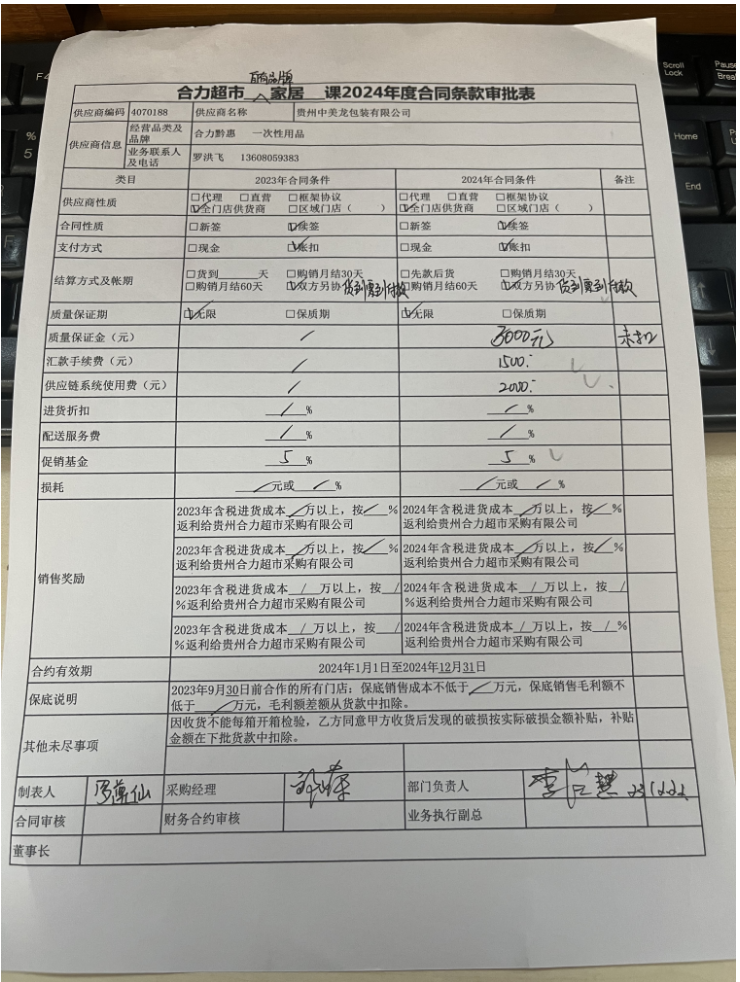 自有品牌
合力超市 家居 课2024年度合同条款审批表
供应商编码 4070188 供应商名称 贵州中美龙包装有限公司
供应商信息 经营品类及品牌 合力黔惠 一次性用品
业务联系人及电话 罗洪飞 13608059383
类目 2023年合同条件 2024年合同条件 备注
供应商性质 □代理 □直营 □框架协议 □代理 □直营 □框架协议
☑全门店供货商 □区域门店（ ） ☑全门店供货商 □区域门店（ ）
合同性质 □新签 ☑续签 □新签 ☑续签
支付方式 □现金 ☑账扣 □现金 ☑账扣
结算方式及帐期 □货到____天 □购销月结30天 □先款后货 □购销月结30天
□购销月结60天 ☑双方另协 货到票到付款 □购销月结60天 ☑双方另协 货到票到付款
质量保证期 ☑无限 □保质期 ☑无限 □保质期
质量保证金（元） / 3000元 未扣
汇款手续费（元） / 1500
供应链系统使用费（元） / 2000
进货折扣 / % / %
配送服务费 / % / %
促销基金 5 % 5 %
损耗 / 元或 / % / 元或 / %
销售奖励
2023年含税进货成本 / 万以上，按 / % 2024年含税进货成本 / 万以上，按 / %
返利给贵州合力超市采购有限公司 返利给贵州合力超市采购有限公司
2023年含税进货成本 / 万以上，按 / % 2024年含税进货成本 / 万以上，按 / %
返利给贵州合力超市采购有限公司 返利给贵州合力超市采购有限公司
2023年含税进货成本 / 万以上，按 / 2024年含税进货成本 / 万以上，按 /
%返利给贵州合力超市采购有限公司 %返利给贵州合力超市采购有限公司
2023年含税进货成本 / 万以上，按 / 2024年含税进货成本 / 万以上，按 / %
%返利给贵州合力超市采购有限公司 返利给贵州合力超市采购有限公司
合约有效期 2024年1月1日至2024年12月31日
保底说明 2023年9月30日前合作的所有门店：保底销售成本不低于 / 万元，保底销售毛利额不
低于 / 万元，毛利额差额从货款中扣除。
其他未尽事项 因收货不能每箱开箱检验，乙方同意甲方收货后发现的破损按实际破损金额补贴，补贴
金额在下批货款中扣除。
制表人 采购经理 部门负责人
合同审核 财务合约审核 业务执行副总
董事长
Scroll
Lock
Home
End
F4
%
5